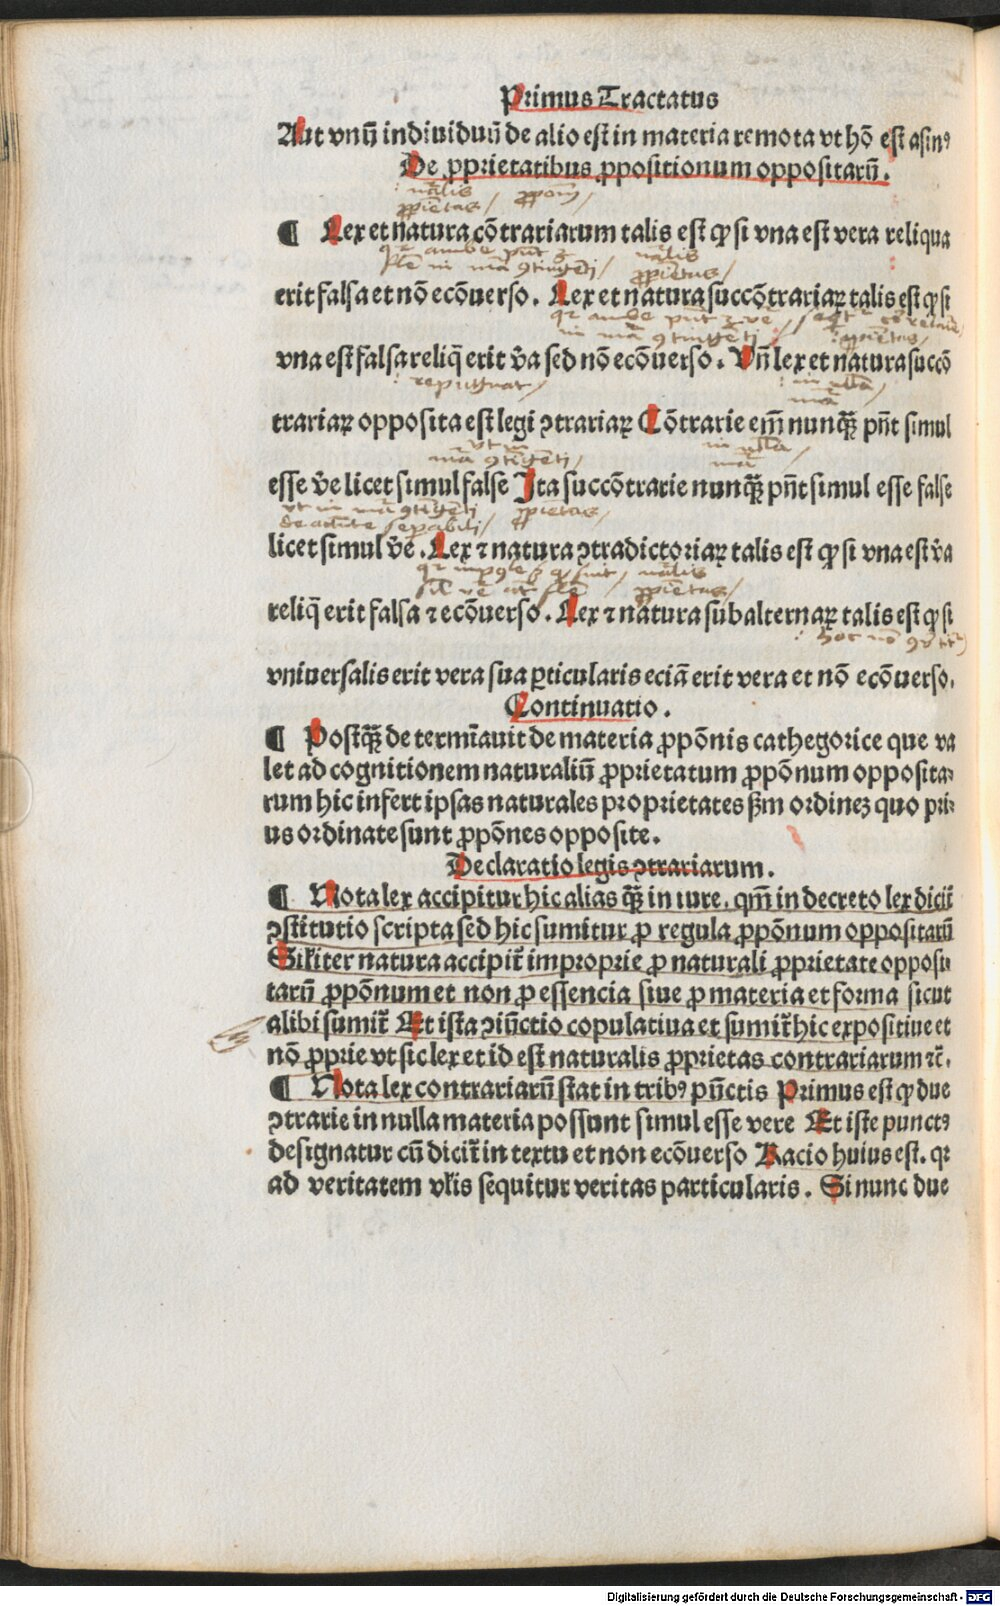 Primus Tractatus
Aut vnū indiuiduū de alio est in materia remota vt hō est asinꝰ
De ꝓprietatibus ꝓpositionum oppositarū.
: nālis
ꝓprietas / ꝓpōm /
¶ Lex et natura cōtrariarum talis est ꝙ si vna est vera reliqua
qꝛ ambe pn̄t
false in mā ꝯtingēti / nālis
ꝓprietas /
erit falsa et nō ecōuerso. Lex et natura succōtrariaꝝ talis est ꝙ si
qꝛ ambe pn̄t
in mā ꝯtingēti / : ꝓprietas /
vna est falsa reliq̄ erit v̄a sed nō ecōuerso. Vn̄ lex et natura succō
: repugnat / : in nulla /
mā
trariaꝝ opposita est legi ꝯtrariaꝝ Cōtrarie em̄ nunqꝫ̄ pn̄t simul
vt in
mā ꝯtīgēti / in nulla
mā /
esse v̄e licet simul false Ita succōtrarie nunqꝫ̄ pn̄t simul esse false
vt in mā ꝯtīgēti
de accn̄te sepabili / ꝓprietas /
licet simul v̄e. Lex ⁊ natura ꝯtradictoriaꝝ talis est ꝙ si vna est v̄a
nālis
ꝓprietas /
reliq̄ erit falsa ⁊ ecōuerso. Lex ⁊ natura subalternaꝝ talis est ꝙ si
: hoc nō
vniuersalis erit vera sua ꝑticularis eciā erit vera et nō ecōuerso.
Continuatio.
¶ Postqꝫ̄ determīauit de materia ꝓpōnis cathegorice que va
let ad cognitionem naturaliū ꝓprietatum ꝓpōnum opposita-
rum hic infert ipsas naturales proprietates ẜm ordineꝫ quo pri-
us ordinate sunt ꝓpōnes opposite.
Declaratio legis ꝯtrariarum.
¶ Nota lex accipitur hic alias qꝫ̄ in iure. qm̄ in decreto lex dicit̄
ꝯstitutio scripta sed hic sumitur ꝓ regula ꝓpōnum oppositarū
Silriter natura accipit̄ improprie ꝓ naturali ꝓprietate opposi-
tarū ꝓpōnum et non ꝓ essencia siue ꝓ materia et forma sicut
alibi sumit̄ Et ista ꝯiūctio copulatiua et sumit̄ hic expositiue et
nō ꝓprie vt sic lex et id est naturalis ꝓprietas contrariarum ⁊c̄.
¶ Nota lex contrariarū stat in tribꝰ pūctis Primus est ꝙ due
ꝯtrarie in nulla materia possunt simul esse vere Et iste punctꝰ
designatur cū dicit̄ in textu et non ecōuerso Racio huius est. qꝛ
ad veritatem vl̄is sequitur veritas particularis. Si nunc due
Digitalisierung gefördert durch die Deutsche Forschungsgemeinschaft - DFG